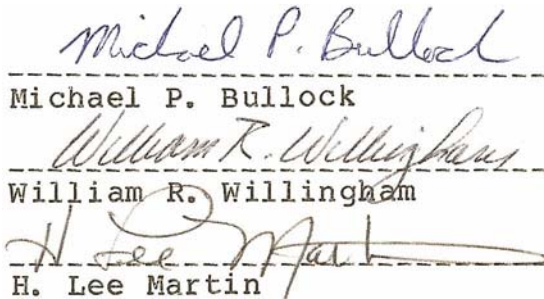 Michael P. Bullock
Michael P. Bullock
William R. Willingham
William R. Willingham
H Lee Martin
H. Lee Martin